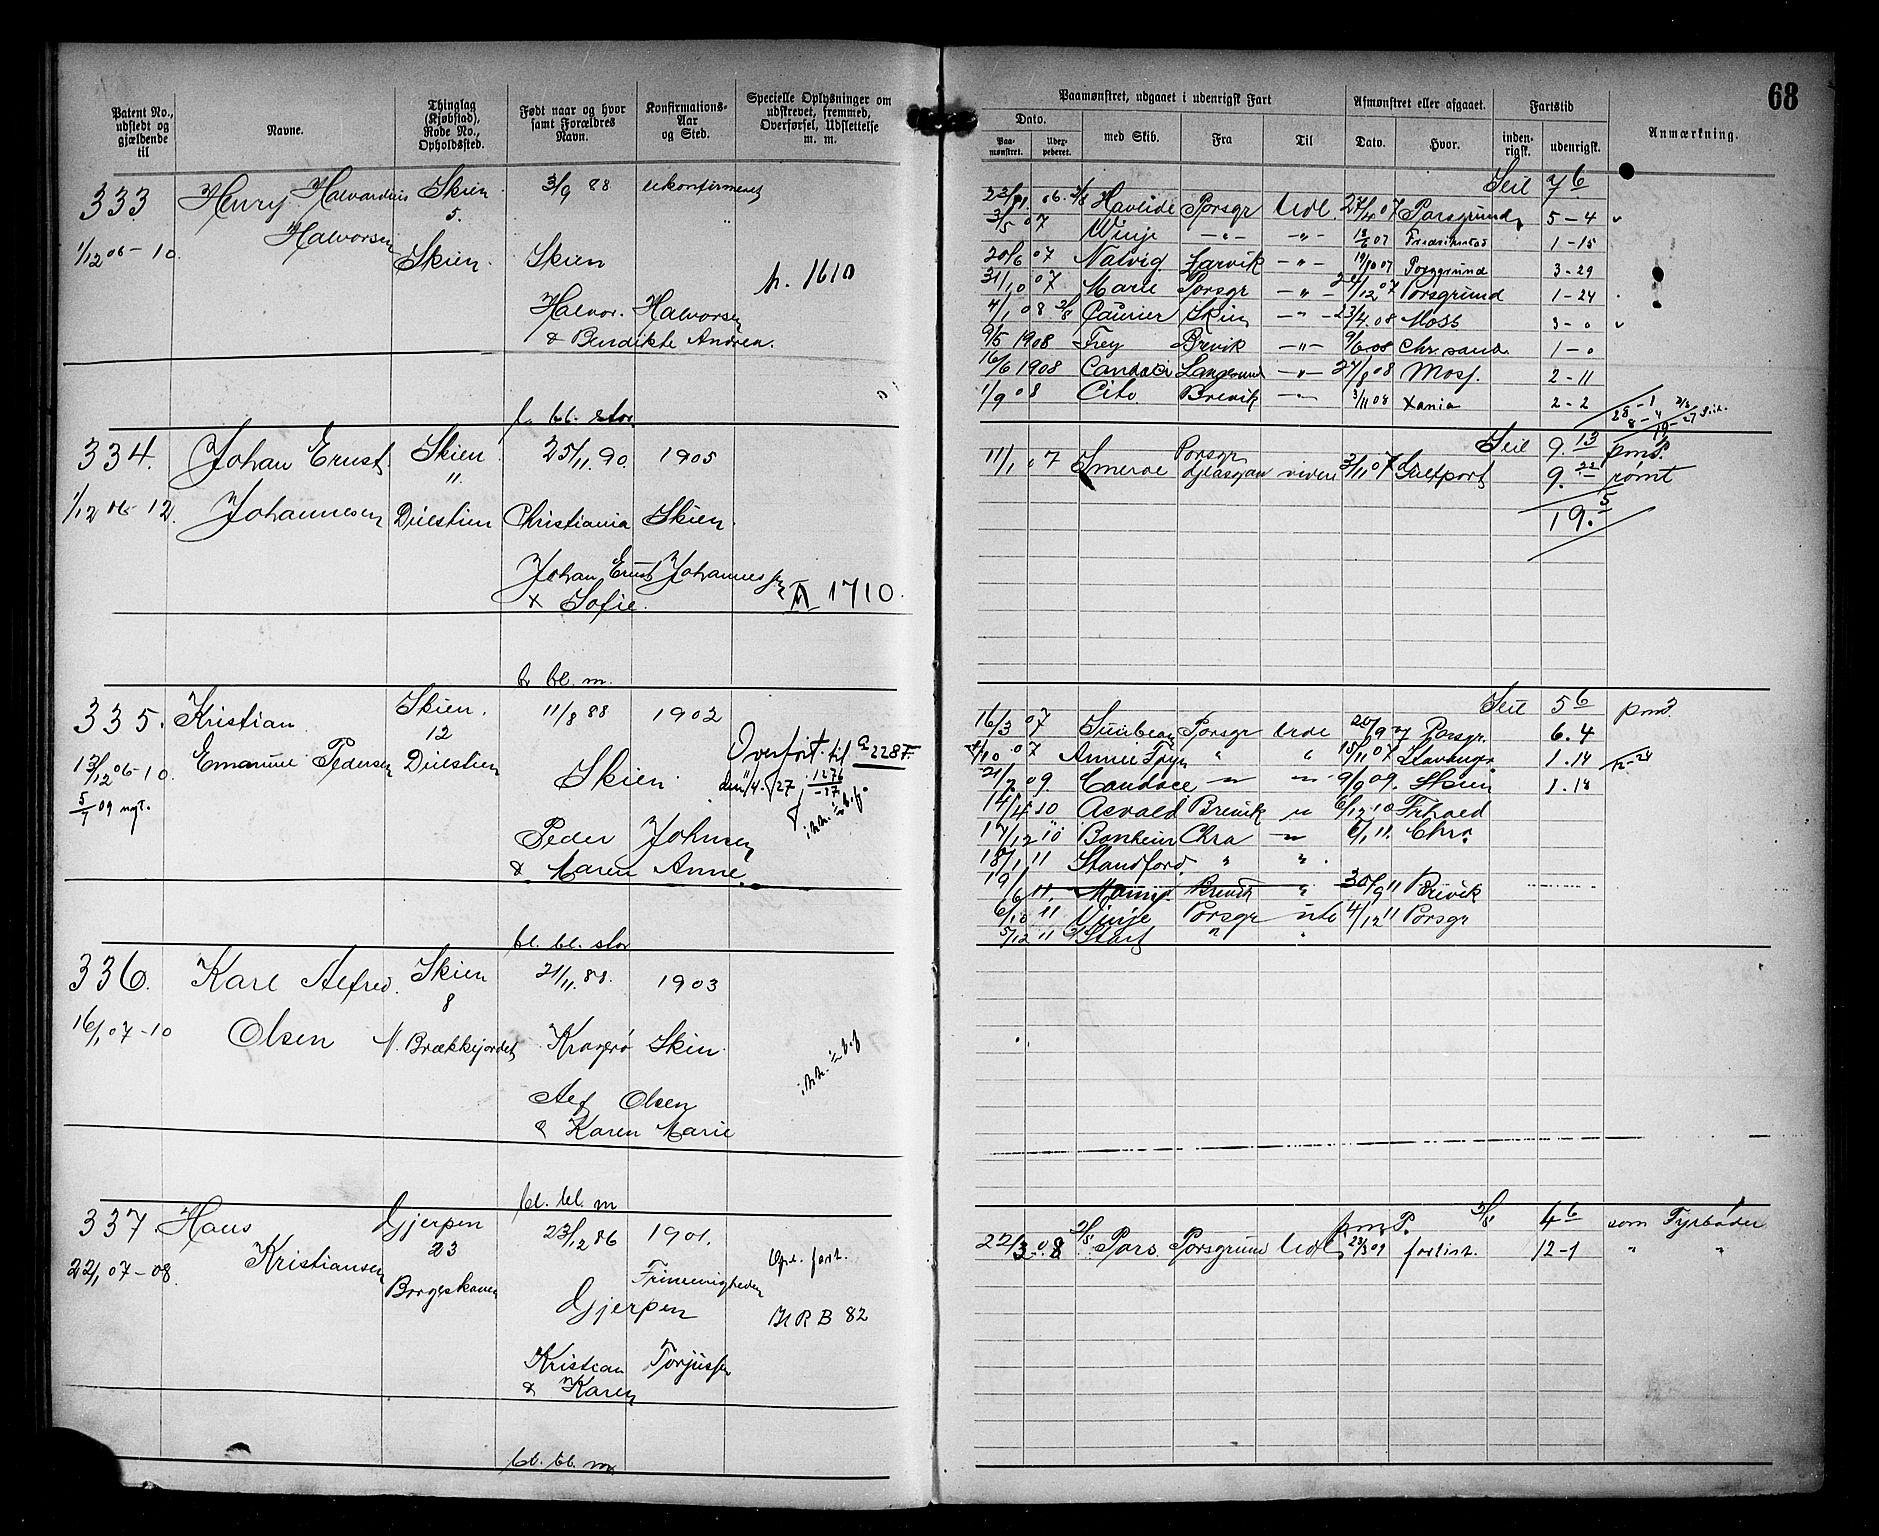 68
Patent No., udstedt og gjældende til
Navne.
Thinglag (Kjøbstad), Rode No., Opholdssted.
Født naar og hvor samt Forældres Navn.
Konfirmations-Aar og Sted.
Specielle Oplysninger om udstrevet, fremmed, Overførsel, Udslettelse m. m.
Paamønstret, udgaaet i udenrigsk Fart
Afmønstret eller afgaaet.
Fartstid
Anmærkning.
Dato.
Paamønstret.
Udexpederet.
med Skib.
Fra
Til
Dato.
Hvor.
indenrigsk.
udenrigsk.
333 Henry Halvardius Skien 3/9 88 ukonfirmeret
Halvorsen 5.
1/12 06-10 Skien. Skien
h. 1610
Halvor. Halvorsen
& Bendikte Andrea.
Seil
Havlide Porsgr Udl 27/4 07 Porsgrund 5-4
3/5 07 Vinje -"- -"- 18/6 07 1-15
20/6 07 Natvig Larvik -"- 19/10 07 Porsgrund 3-29
31/10 07 Marie Porsgr -"- Porsgrund 1-24
4/1 08 Skien -"- 23/4.08 Moss 3-0
9/5 1908 Frey Brevik -"- 9/6 08 Chr.sand. 1-0
16/6 1908 Langesund -"- 27/8 08 Moss. 2-11
1/9 08 Cito Brevik 3/11 08 Xania 2-2
bl. stor
334. Johan Ernst Skien 25/11.90. 1905
11.
1/12 06-12. Johannesen Duestien Christiania Skien.
Johan Ernst Johannessen
& Sofie.
1710.
Seil 9.13
11/1 07 Smerve Porsgr
Glasgow videre 3/11 07 Gulfport 9.22 rømt
19.5
bl. m.
335. Kristian Skien. 11/8 88 1902
12
13/12 06-10. Emanuel Pedersen Duestien Skien. Overført til 228 F.
5/7 09 nyt.
Peder Johnsen
& Maren Anne.
Seil 5 6
16/3 07 Porsgr Urde Porsgr. 6.4
07 15/11 07 Stavanger 1.14
09 Candace 9/9 09. Skien 1.18
14/4 10 Asvald Brevik 6/12 10
17/12 10 Bonheur Chra 6/1 11. Chra
18/1 11 Standford.
19/6 11. Brevik 30/9 11 Brevik
6/10 11 Vinje Porsgr 4/12 11 Porsgr
5/12 11 Start
bl. bl. stor
336. Karl Alfred. Skien 21/11.88. 1903
8
16/1 07-10 Olsen N. Brækkejordet Kragerø Skien.
Alf Olsen
& Karen Marie
bl. bl. m
337 Hans Gjerpen 23/12 86 1901.
23
22/1 07-08. Kristiansen Borgeskaven Frimenigheden
Gjerpen
82
Kristian Torjussen
& Karen
4 6 som Fyrbøder
22/3 08 Pors. Porsgrund Udl 23/3 09 forlist. 12-1 " "
bl. bl. m